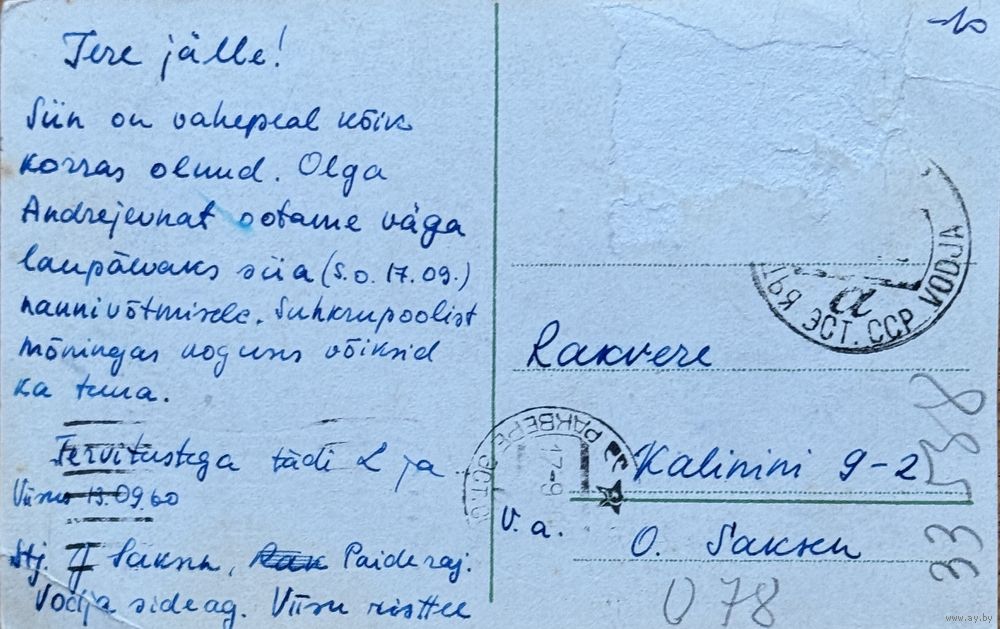 Tere jälle!
Siin on vahepeal kõik
korras olnud. Olga
Andrejevnat ootame väga
laupäevaks siia (s.o. 17.09.)
nannivõtmisele. Suhkrupoolist
mõningas koguses võiksid
ka tuua.
Tervitustega tädi L ja
Viisu 13.09.60
Stj. Saksu, Paide raj.
Vodja sideag. Viisu risttee
10
ЭСТ. ССР VODJA
а
Rakvere
РАКВЕРЕ ЭСТ.
17-9
Kalinini 9-2
v. a.
O. Saksu
U 78
33 538
www.ay.by